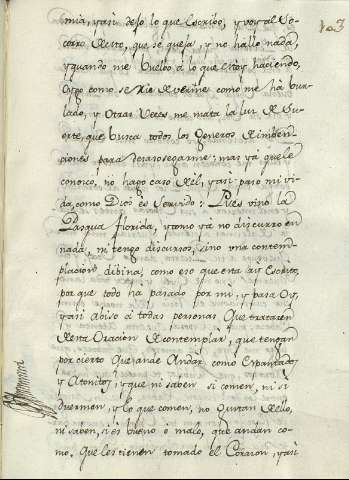 103
mia, y asi dejo lo que Escribo, y voy al So-
corro desto, que se queja, y no hallo nada,
y quando me buelbo a lo que estoy haciendo,
Oygo como se Rie de verme como me há bur-
lado, y Otras Veces me mata la luz de Su-
erte, que busca todos los Generos de imben-
ciones para desasosegarme: mas yá que le
conosco, no hago caso del, y asi paso mi vi-
da, como Dios és Servido: Pues vino la
Pasqua florida, y como ya no discurro en
nada, ni tengo discursos, sino una contem-
placion dibina; como eso que esta ay Escrito,
por que todo ha pasado por mi, y pasa Oy,
y asi abiso á todas personas Que trataren
desta Oracion de contemplar, que tengan
por cierto Que ande Andar como Espantados
y Atonitos, y que ni saben si comen, ni si
duermen, y lo que comen, no Gustan dello,
ni saben, si és bueno ó malo, que andan co-
mo, Que les tienen tomado el Corazon, y asi